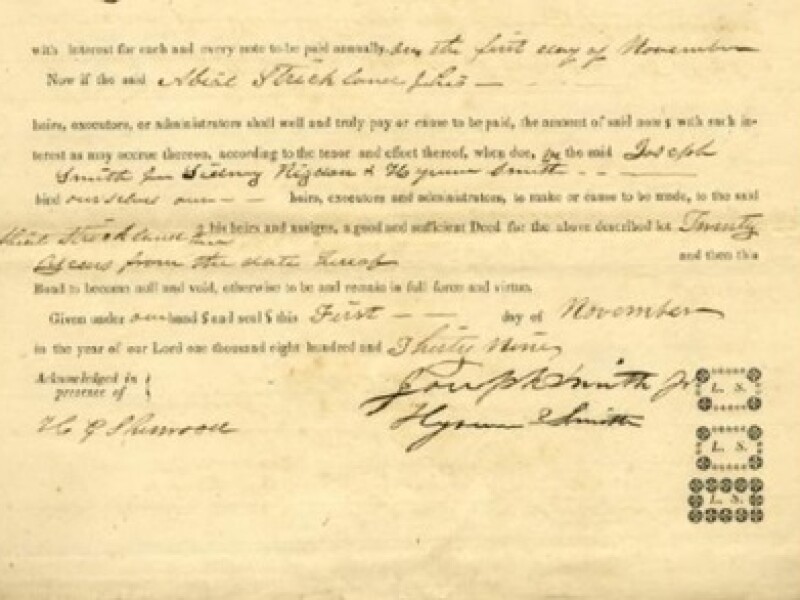 with interest for each and every note to be paid annually. on the first day of November
Now if the said Abiel Strickland & his
heirs, executors, or administrators shall well and truly pay or cause to be paid, the amount of said notes with such in-
terest as may accrue thereon, according to the tenor and effect thereof, when due, the said Joseph
Smith Jr Sidney Rigdon & Hyrum Smith
bind ourselves our heirs, executors and administrators, to make or cause to be made, to the said
Abiel Strickland his heirs and assigns, a good and sufficient Deed for the above described lot Twenty
years from the date hereof and then this
Bond to become null and void, otherwise to be and remain in full force and virtue.
Given under our hands and seals this First day of November
in the year of our Lord one thousand eight hundred and Thirty Nine
Acknowledged in presence of
Joseph Smith Jr L. S.
H G Sherwood
Hyrum Smith L. S.
L. S.